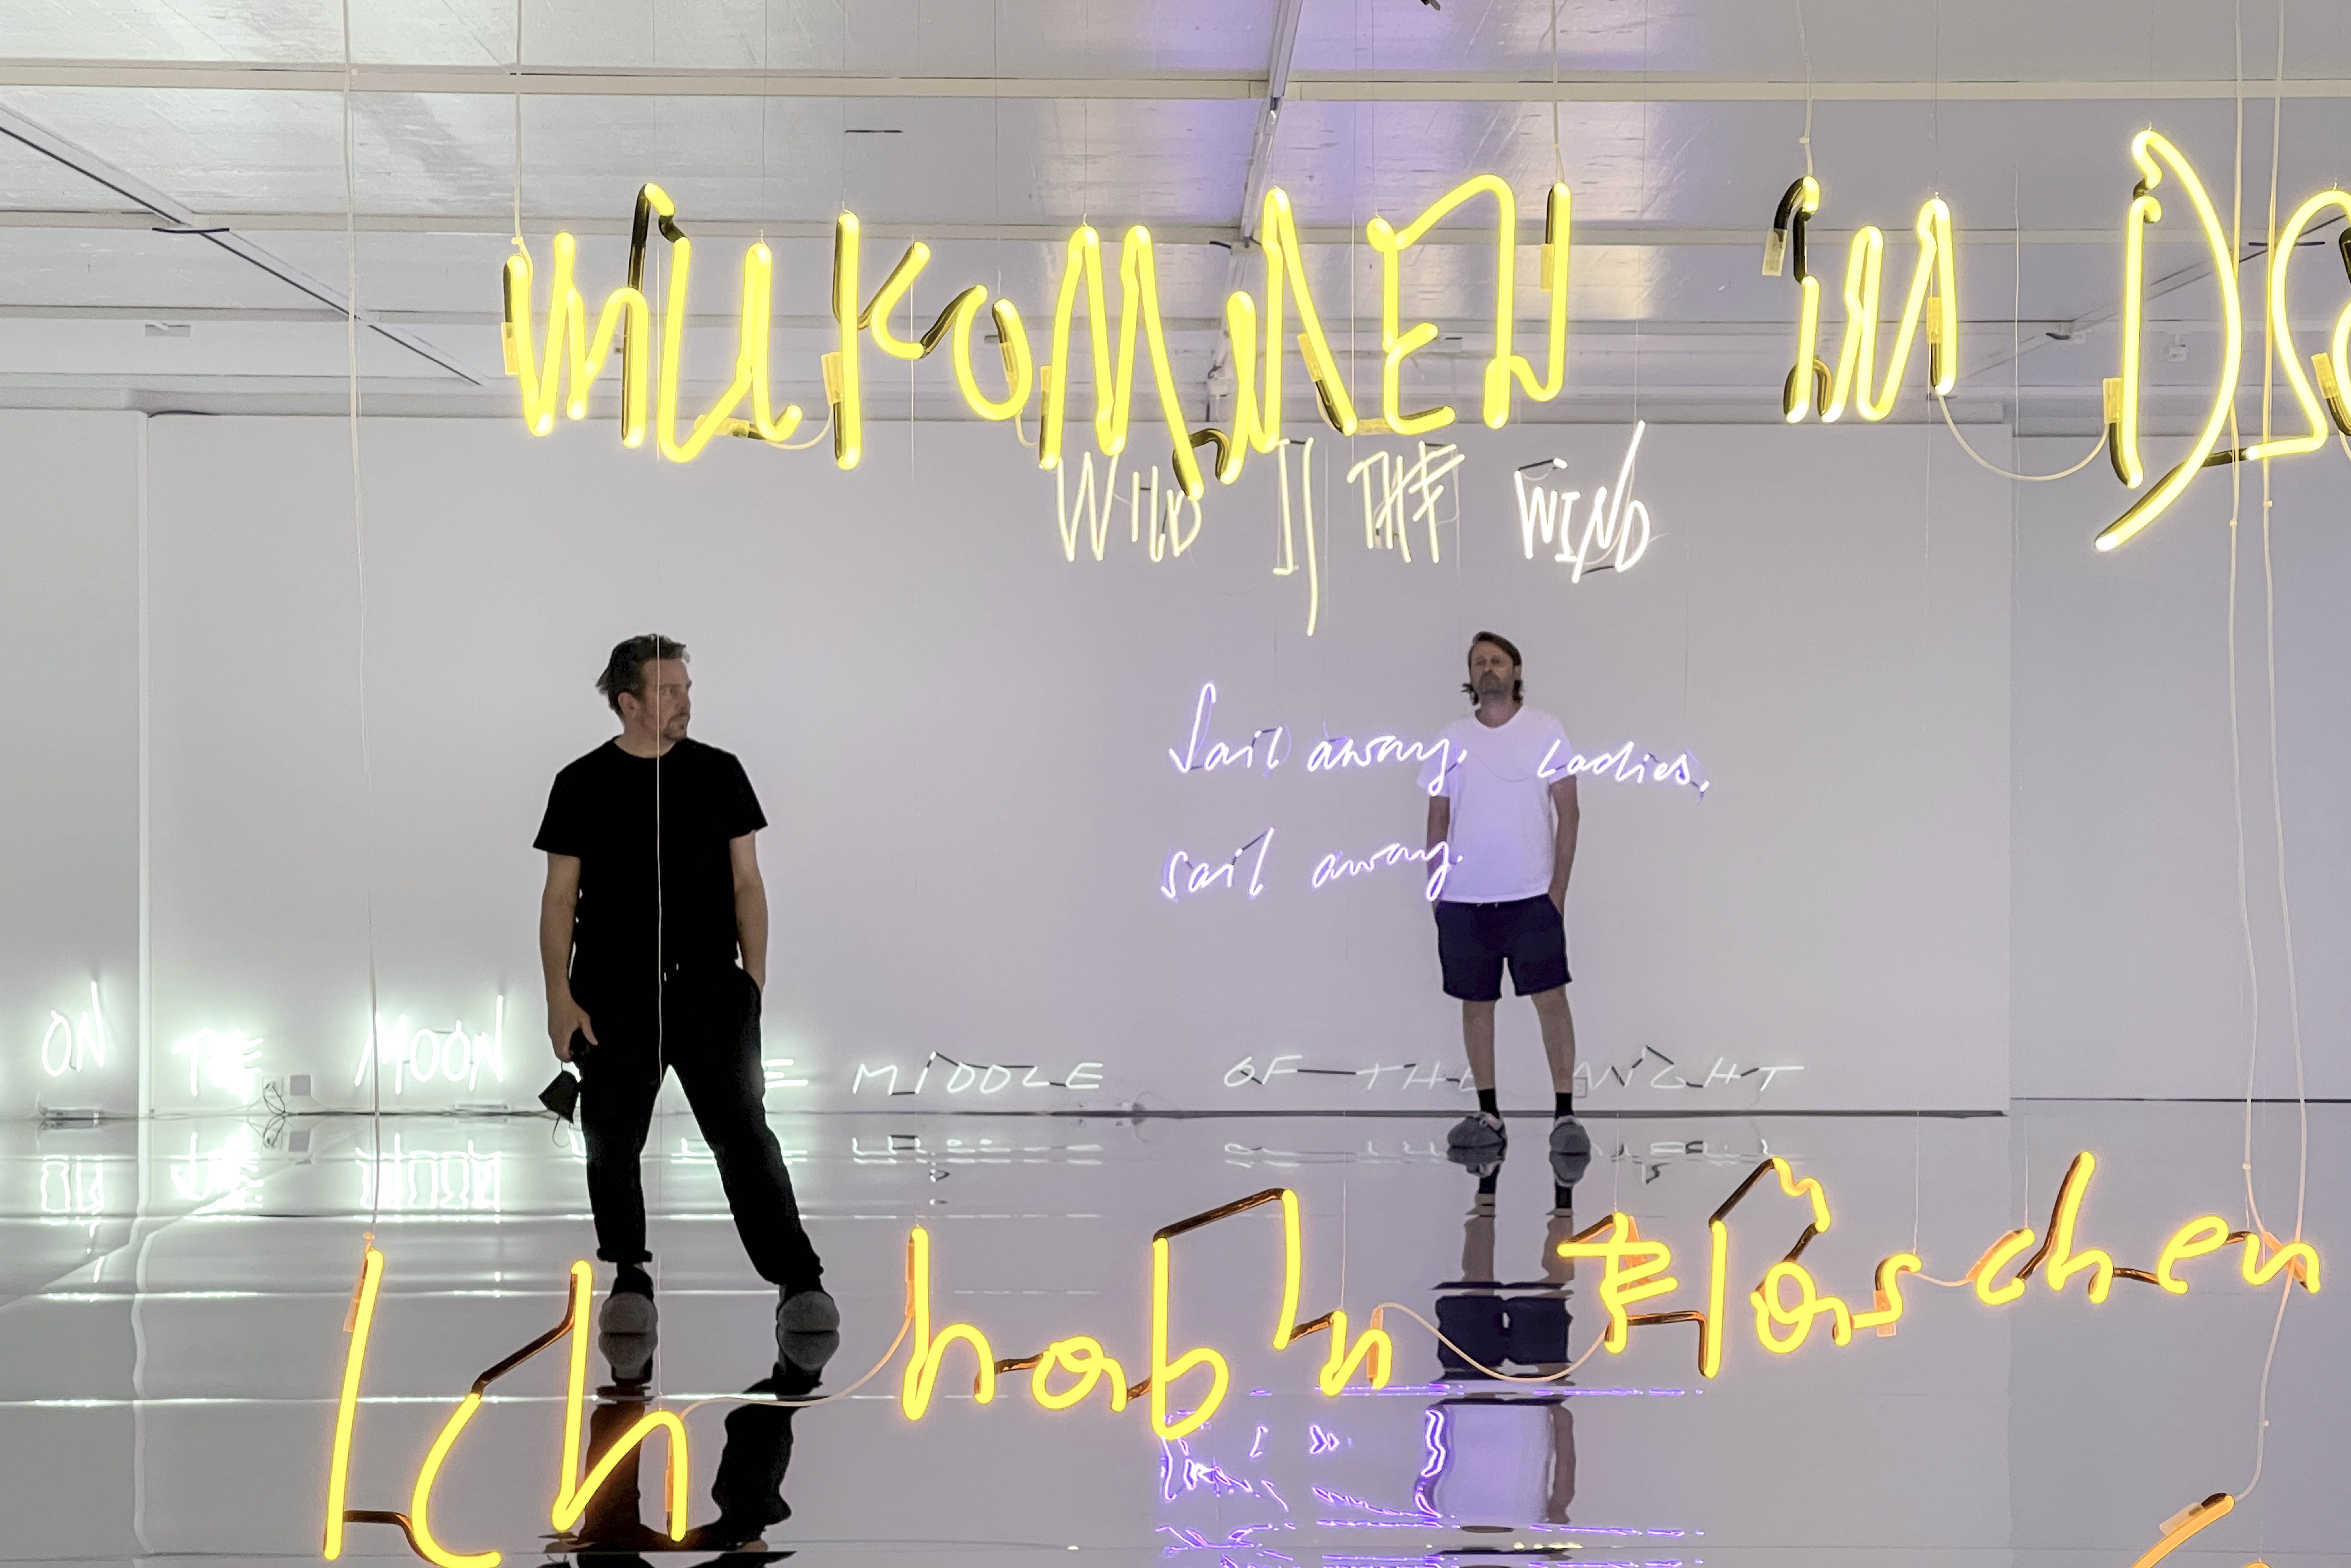 WillKOMMEN iM
WilD IS THE WIND
Sail away, Ladies,
sail away.
ON THE MOON
MiDDLE OF THE NiGHT
Ich hab'n Fläschen